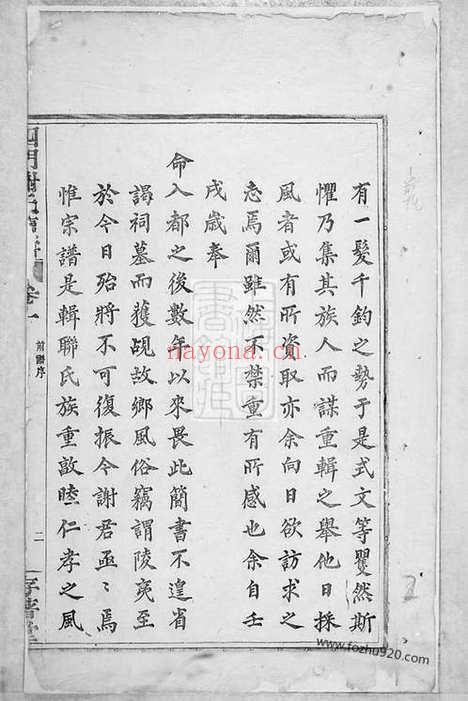 有一髮千鈞之勢于是式文等瞿然斯
懼乃集其族人而謀重輯之舉他日採
風者或有所資取亦余向日欲訪求之
志焉爾雖然不禁重有所感也余自壬
戌歲奉
命入都之後數年以來畏此簡書不遑省
謁祠墓而獲覘故鄉風俗竊謂陵夷至
於今日殆將不可復振今謝君亟亟焉
惟宗譜是輯聯氏族重敦睦仁孝之風
卷一
前譜序
二
nayona.cn
www.fozhu920.com